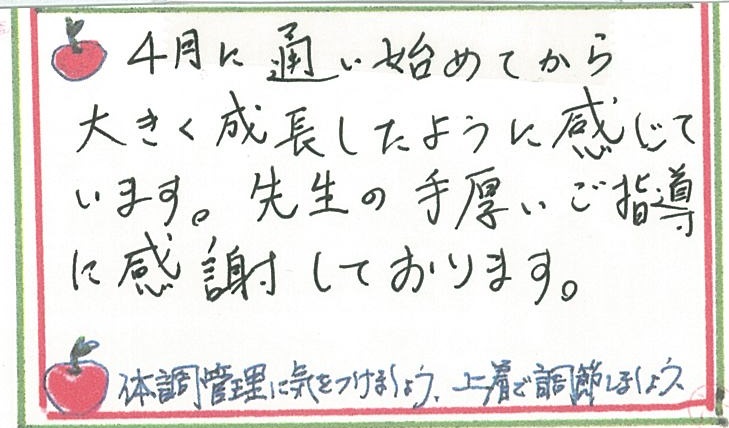 4月に通い始めてから
大きく成長したように感じて
います。先生の手厚いご指導
に感謝しております。
体調管理に気をつけましょう、上着で調節しましょう、